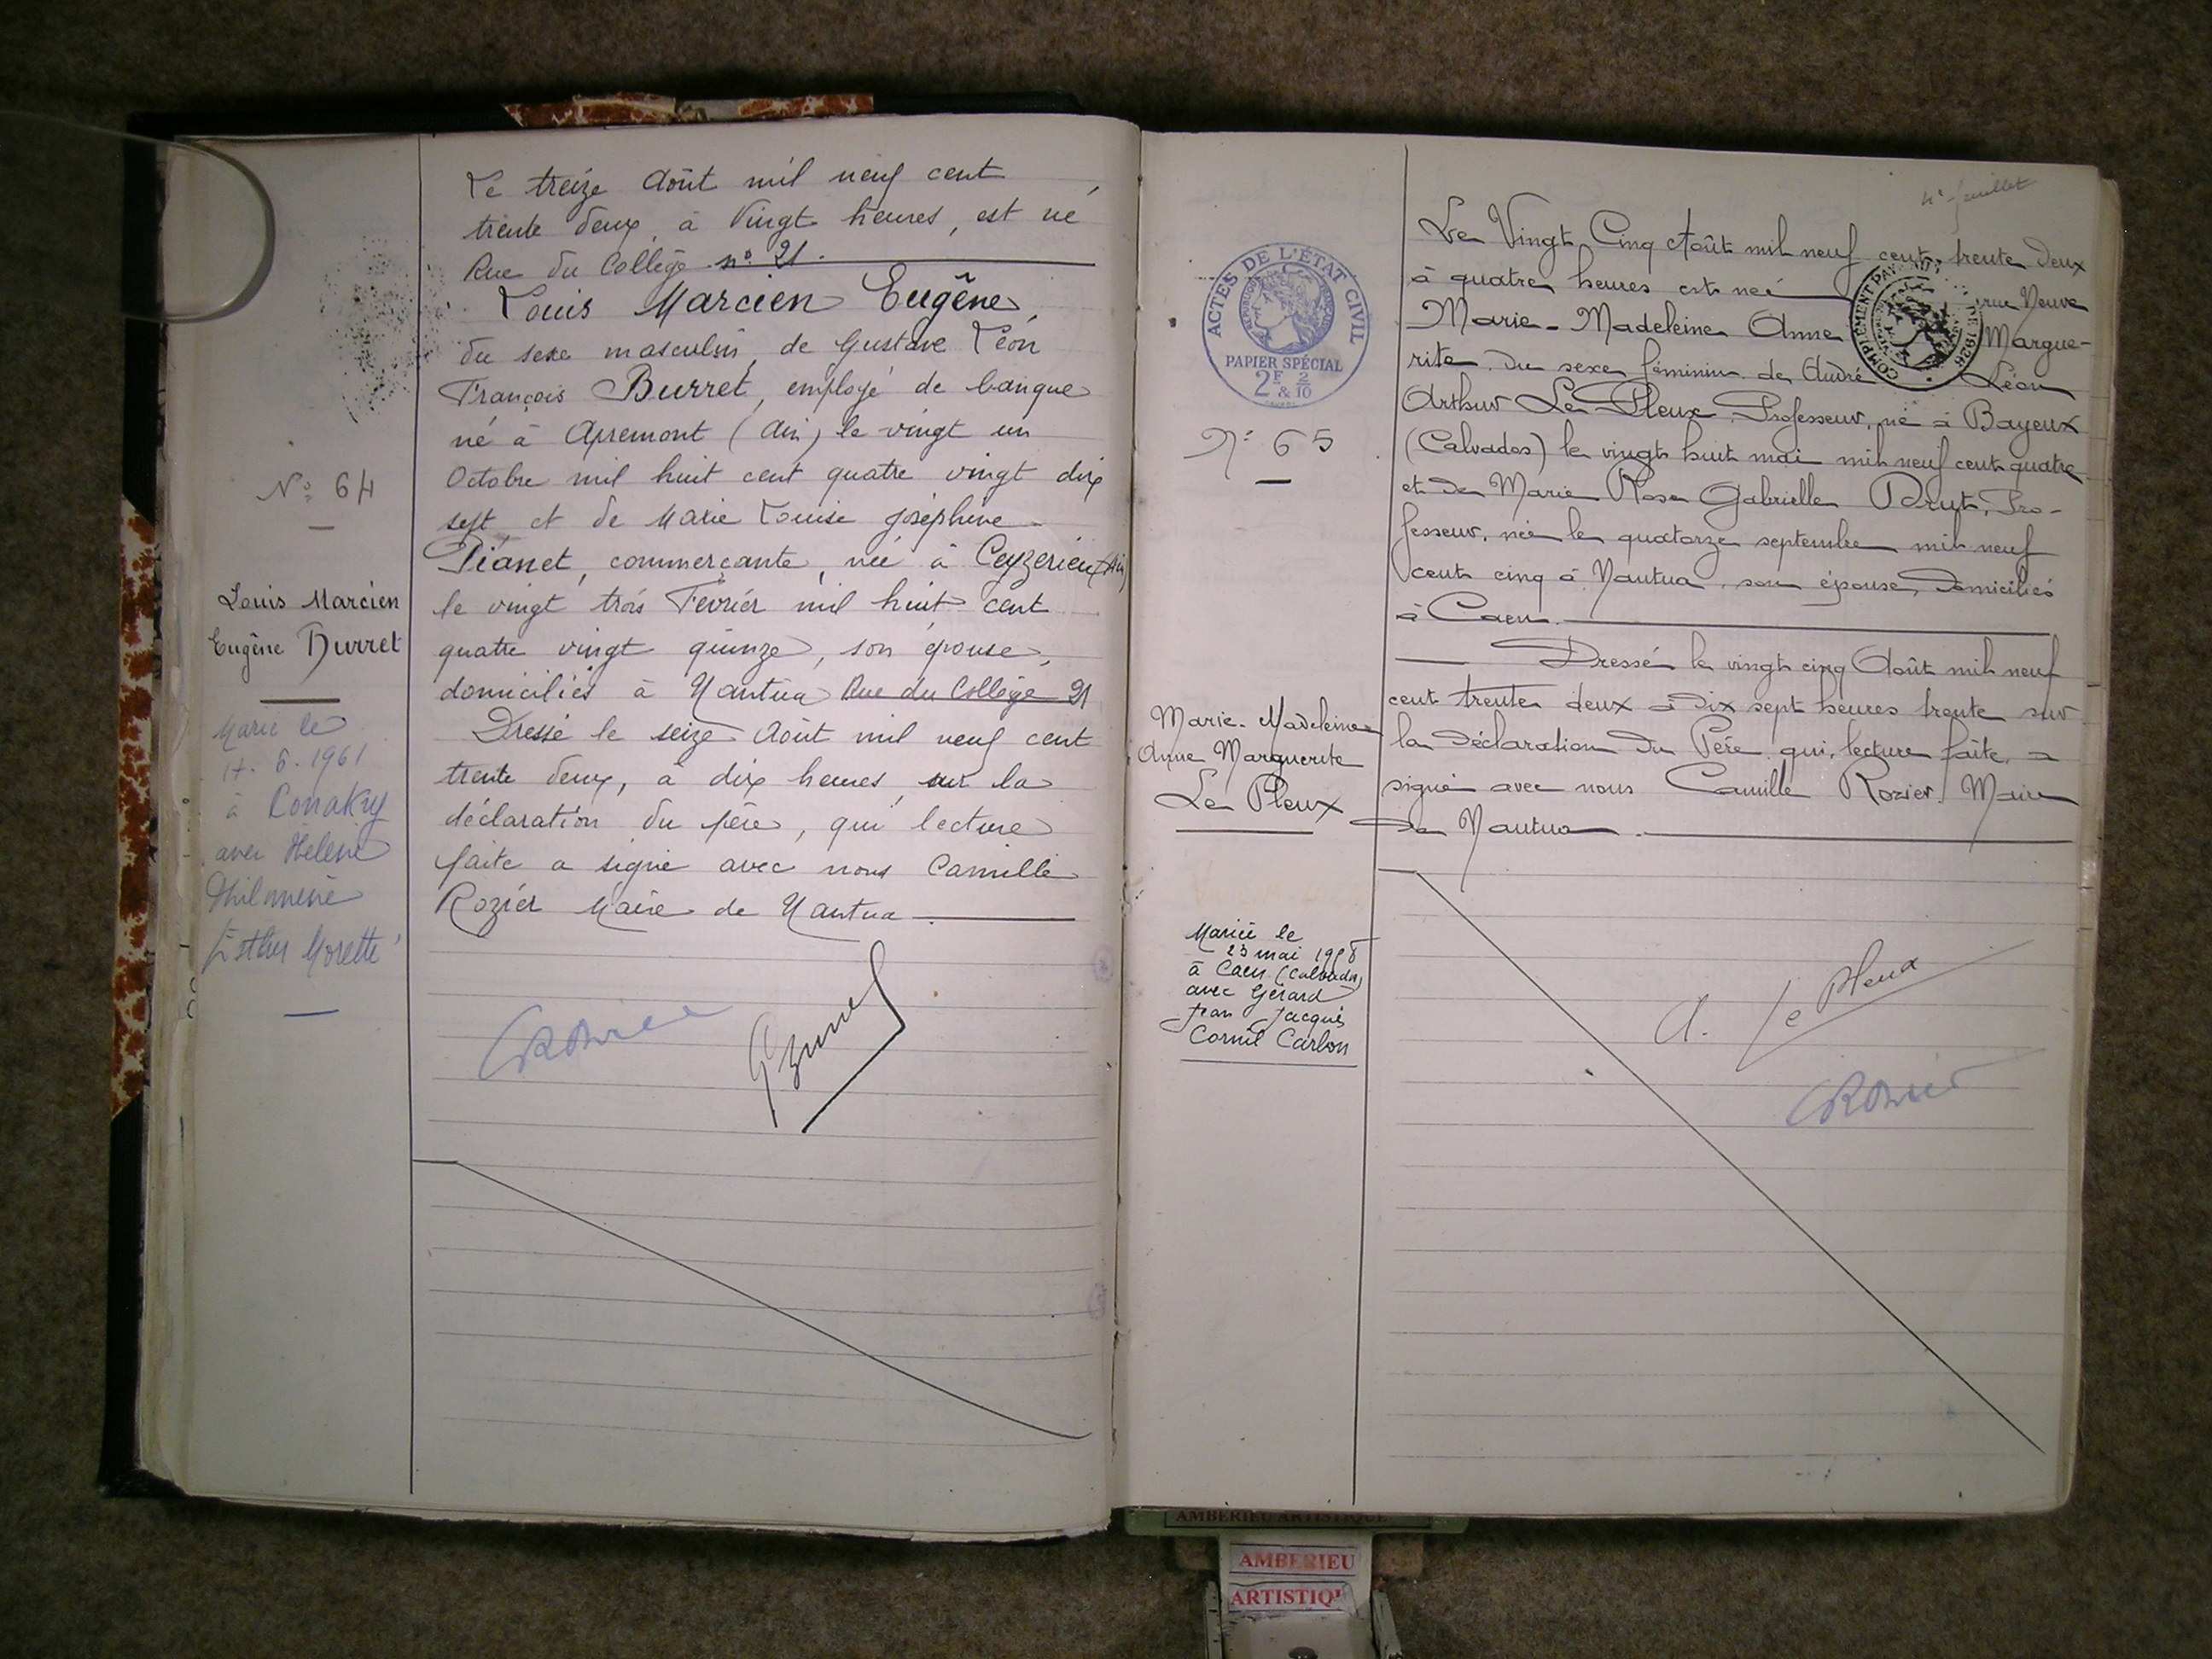 Le treize Août mil neuf cent
trente deux, à Vingt heures, est né
Rue du Collège n° 21.
Louis Marcien Eugène,
du sexe masculin, de Gustave Léon
François Burret, employé de banque
né à Apremont (Ain) le vingt un
Octobre mil huit cent quatre vingt dix
sept et de Marie Louise Joséphine
Pianet, commerçante, née à Ceyzerieu (Ain)
le vingt trois Février mil huit cent
quatre vingt quinze, son épouse,
domiciliés à Nantua Rue du Collège 21
Dressé le seize Août mil neuf cent
trente deux, à dix heures, sur la
déclaration du père, qui lecture
faite a signé avec nous Camille
Rozier Maire de Nantua
N° 64
Louis Marcien
Eugène Burret
Marié le
.6.1961
à Conakry
avec Hélène
Philomène
Esther Morette
4e feuillet
Le Vingt Cinq Août mil neuf cent trente deux
à quatre heures est née rue Neuve
Marie-Madeleine Anne Margue-
rite du sexe féminin de André Léon
Arthur Le Pleux, Professeur, né à Bayeux
(Calvados) le vingt huit mai mil neuf cent quatre
et de Marie Rose Gabrielle Pro-
fesseur, née le quatorze septembre mil neuf
cent cinq à Nantua, son épouse, domiciliés
à Caen.
Dressé le vingt cinq Août mil neuf
cent trente deux à dix sept heures trente sur
la déclaration du Père qui, lecture faite, a
signé avec nous Camille Rozier Maire
de Nantua.
A. Le Pleux
CRozier
ACTES DE L'ÉTAT CIVIL
PAPIER SPÉCIAL
2F & 2/10
N° 65
Marie-Madeleine
Anne Marguerite
Le Pleux
Mariée le
23 mai
à Caen (Calvados)
avec Gérard
Jean Jacques
Cornil Carbon
AMBERIEU ARTISTIQUE
AMBERIEU
ARTISTIQU